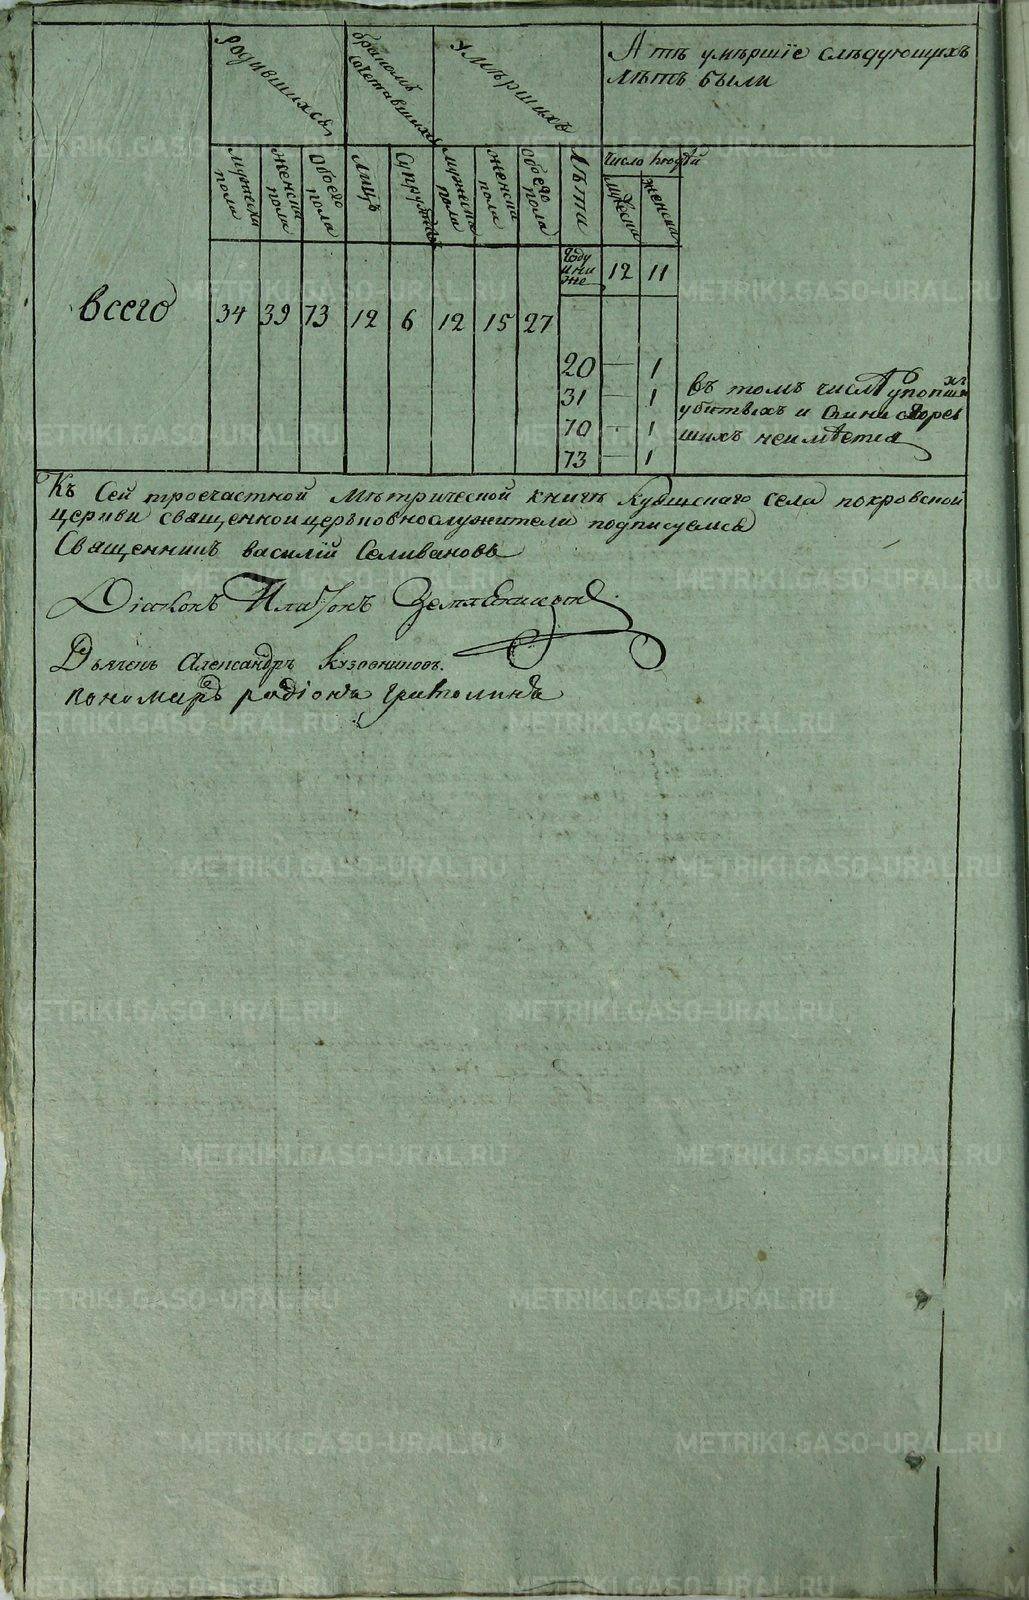 Родившихся
бракомъ
сочетавшихся
Умѣршихъ
А тѣ умѣршіе слѣдующихъ
лѣтъ были
мужеска пола
женска пола
Обоего пола
лицъ
Супружествъ
мужеска пола
женска пола
Обоего пола
Лѣта
Число людей
мужеска
женска
всего
34 39 73 12 6 12 15 27
Году
и ни
же 12 11
20 — 1
31 — 1
70 - 1
73 — 1
въ томъ числѣ утопшихъ
убитыхъ и сгорев
шихъ неимѣетца
Къ Сей троечастной Мѣтрической книгѣ села покровской
церкви священноицерьковнослужители подписуемся
Священникъ василій Селивановъ
Діаконъ Платонъ Земляницынъ
Дьячекъ Александръ Кузовниковъ.
пономарь родіонъ
METRIKI.GASO-URAL.RU